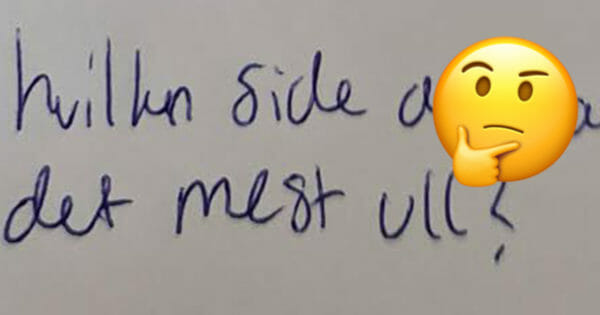 hvilken side
det mest ull?